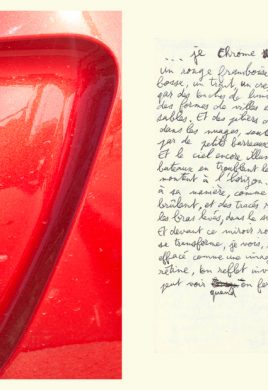 ... je chrome
un rouge framboise
bosse, un trait, un cre
par des touches de lumi
des formes de villes
sables. Et des petits
dans les nuages, sont
par de petits barreaux
Et le ciel encore illum
bateaux en troublent le
montent à l'horizon
à sa manière, comme
brûlent, et des tracés
les bras levés, dans le s
Et devant ce miroir ro
se transforme, je vois,
effacé comme une image
rétine, ton reflet inve
peut voir quand en fer